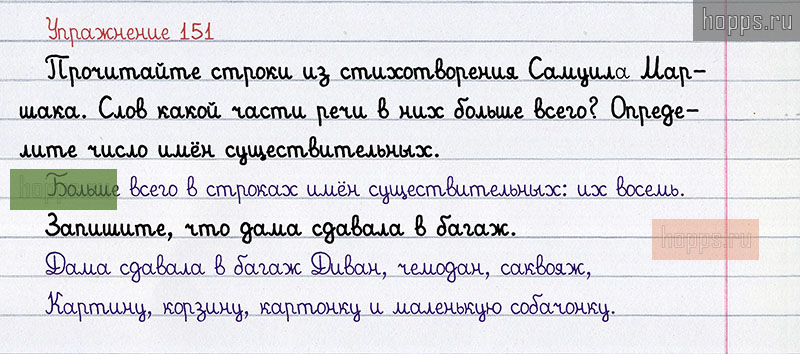 hopps.ru
Упражнение 151
Прочитайте строки из стихотворения Самуила Мар-
шака. Слов какой части речи в них больше всего? Опреде-
лите число имён существительных.
Больше всего в строках имён существительных: их восемь.
Запишите, что дама сдавала в багаж.
hopps.ru
Дама сдавала в багаж Диван, чемодан, саквояж,
Картину, корзину, картонку и маленькую собачонку.